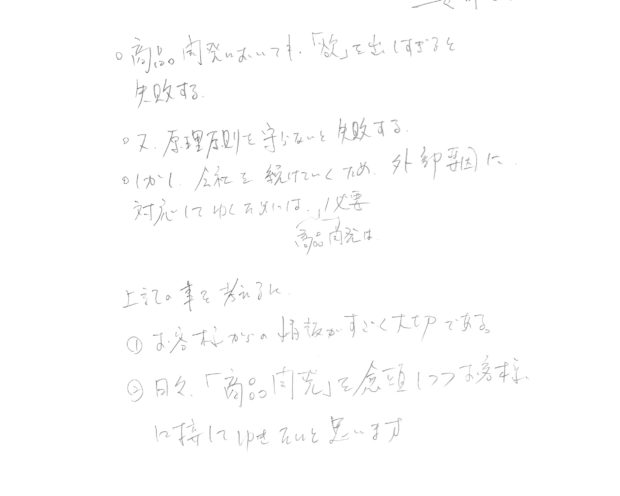 ○商品開発においても、「欲」を出しすぎると
失敗する。
○又、原理原則を守らないと失敗する。
○しかし、会社を続けていくため、外部要因に
対応してゆくためには、必要
商品開発は
上記の事を考えるに、
①お客様からの情報がすごく大切である。
②日々、「商品開発」を念頭しつつお客様
に接してゆきたいと思います